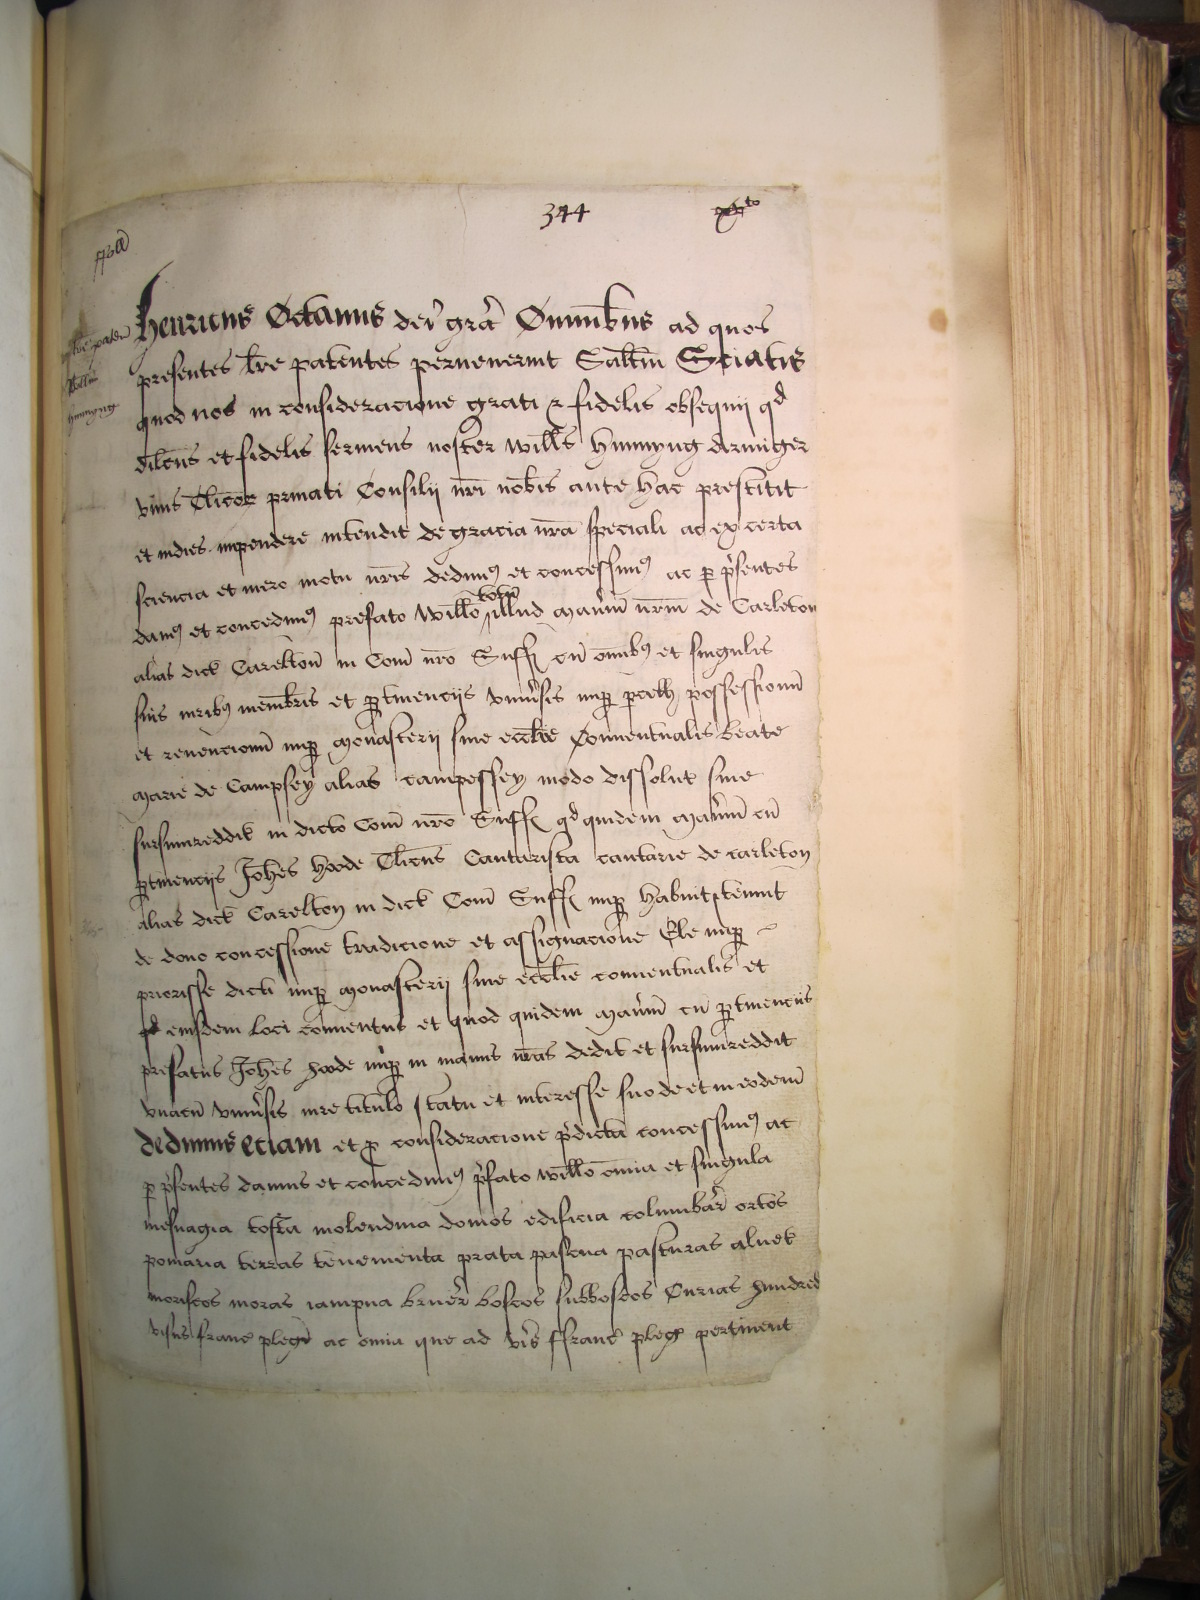 344
Henricus Octauus dei grã Omnibus ad quos
presentes lr̃e patentes peruenerint Saltm̃ Sciatis
quod nos in consideracione grati & fidelis obsequij qd
dilc̃us et fidelis seruiens noster Will̃s Hunnyng Armiger
vnus Clic̃or priuati Consilij nr̃i nob̃is ante hac prestitit
et indies impendere intendit de gracia nr̃a speciali ac ex certa
sciencia et mero motu nr̃is dedimus et concessimus ac p p̃sentes
damus et concedimus prefato Will̃o totũ illud Man̾iũ nr̃m de Carleton
alias dict Carelton̄ in Com̃ nr̃o Suff cũ om̃ibus et singulis
suis iuribus membris et ptinencijs vniu̾sis nup pcell possessionũ
et reuencionũ nup Monasterij siue eccl̃ie Conuentualis beate
Marie de Campsey alias Campessey modo dissolut siue
sursumreddit in dicto Com̃ nr̃o Suff qd quidem Man̾iũ cũ
ptinencijs Joh̃es Hoode Clic̃us Cantarista cantarie de Carleton
alias dict Carelton in dict Com̃ Suff nup habuit & tenuit
de dono concessione tradicione et assignacione Ele nup
priorisse dicti nup Monasterij siue eccl̃ie conuentualis et
eiusdem loci conuentus et quod quidem Man̾iũ cũ ptinencijs
prefatus Joh̃es Hoode nup in manus nr̃as dedit et sursumreddit
vnacũ vniu̾sis iure titulo statu et interesse suo de et in eodem
dedimus eciam et p consideracione p̃dicta concessimus ac
p p̃sentes damus et concedimus p̃fato Will̃o om̃ia et singula
mesuagia tofta molendina domos edificia columbar̃ ortos
pomaria terras tenementa prata pascua pasturas aluet
mariscos moras iampna bruer̃ boscos subboscos Curias hundred
visus franc pleg̃ ac om̃ia que ad vis̃ ffranc̃ pleg pertinent